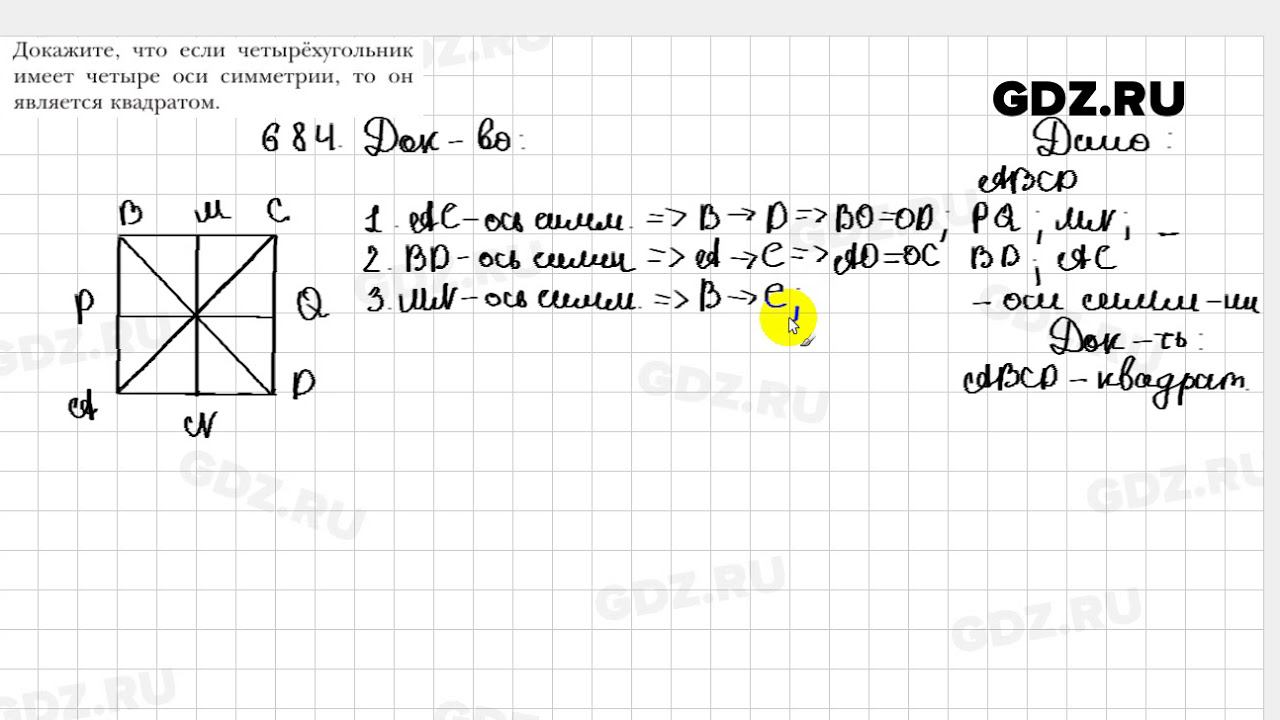 Докажите, что если четырёхугольник
имеет четыре оси симметрии, то он
является квадратом.
GDZ.RU
684. Док-во:
Дано:
ABCD
PQ; MN;
BD; AC
- оси симм-ии
Док-ть:
ABCD - квадрат.
B M C
P Q
A D
N
1. AC - ось симм. => B → D => BO = OD;
2. BD - ось симм => A → C => AO = OC
3. MN - ось симм. => B → C,
GDZ.RU
GDZ.RU
GDZ.RU
GDZ.RU
GDZ.RU
GDZ.RU
GDZ.RU
GDZ.RU
GDZ.RU
GDZ.RU